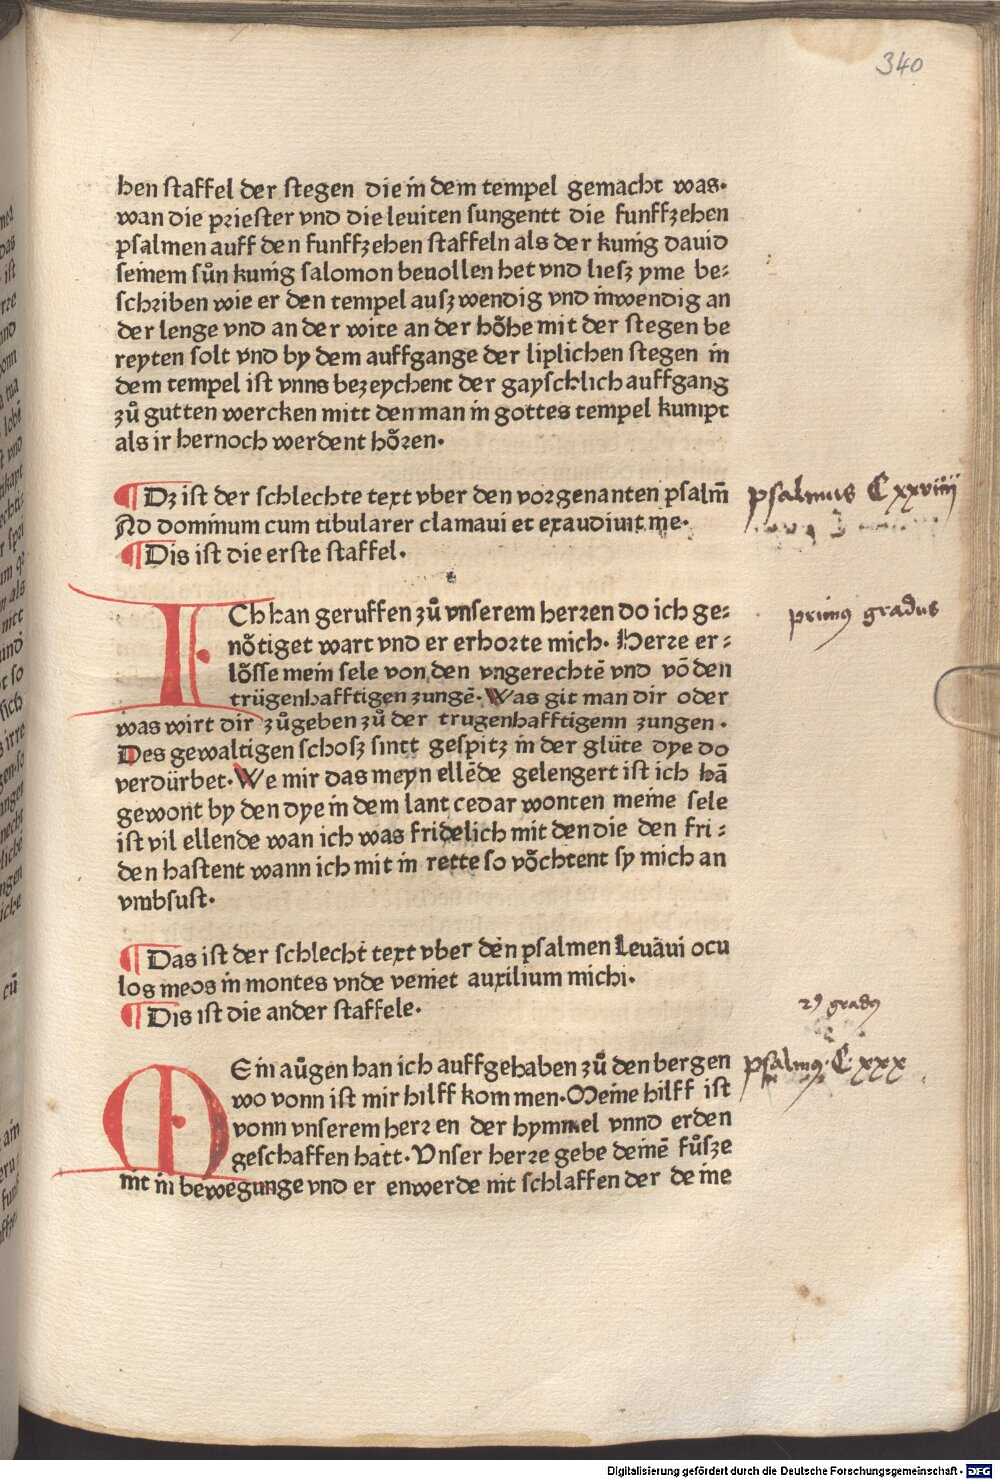 340
hen staffel der stegen die in dem tempel gemacht was·
wan die priester vnd die leuiten sungentt die funffzehen
psalmen auff den funffzehen staffeln als der kunig dauid
seinem sůn kunig salomon beuollen het vnd liesz yme be⸗
schriben wie er den tempel ausz wendig vnd inwendig an
der lenge vnd an der wite an der hőhe mit der stegen be
reyten solt vnd by dem auffgange der liplichen stegen in
dem tempel ist vnns bezeychent der gayschlich auffgang
zů gutten wercken mitt den man in gottes tempel kumpt
als ir hernoch werdent hőren·
¶ Dz ist der schlechte text vber den vorgenanten psalm̄
Ad dominum cum tibularer clamaui et exaudiuit me·
¶ Dis ist die erste staffel·
psalmus Cxxviiij
ICh han geruffen zů vnserem herren do ich ge⸗
nőtiget wart vnd er erhorte mich· Herre er⸗
lősse mein sele von den vngerechtē vnd vō den
trügenhafftigen zungē· Was git man dir oder
was wirt dir zůgeben zů der trugenhafftigenn zungen·
Des gewaltigen schosz sintt gespitz in der glüte dye do
verdürbet· We mir das meyn ellēde gelengert ist ich hā
gewont by den dye in dem lant cedar wonten meine sele
ist vil ellende wan ich was fridelich mit den die den fri⸗
den hastent wann ich mit in rette so vőchtent sy mich an
vmbsust·
primꝰ gradus
¶ Das ist der schlecht text vber den psalmen Leuāui ocu
los meos in montes vnde veniet auxilium michi·
¶ Dis ist die ander staffele·
2ꝰ gradꝰ
MEin aůgen han ich auffgehaben zů den bergen
wo vonn ist mir hilff kommen· Meine hilff ist
vonn vnserem herren der hymmel vnnd erden
geschaffen hatt· Vnser herre gebe deinē fůsze
nit in bewegunge vnd er enwerde nit schlaffen der deine
psalmꝰ· C·xxx
Digitalisierung gefördert durch die Deutsche Forschungsgemeinschaft - DFG